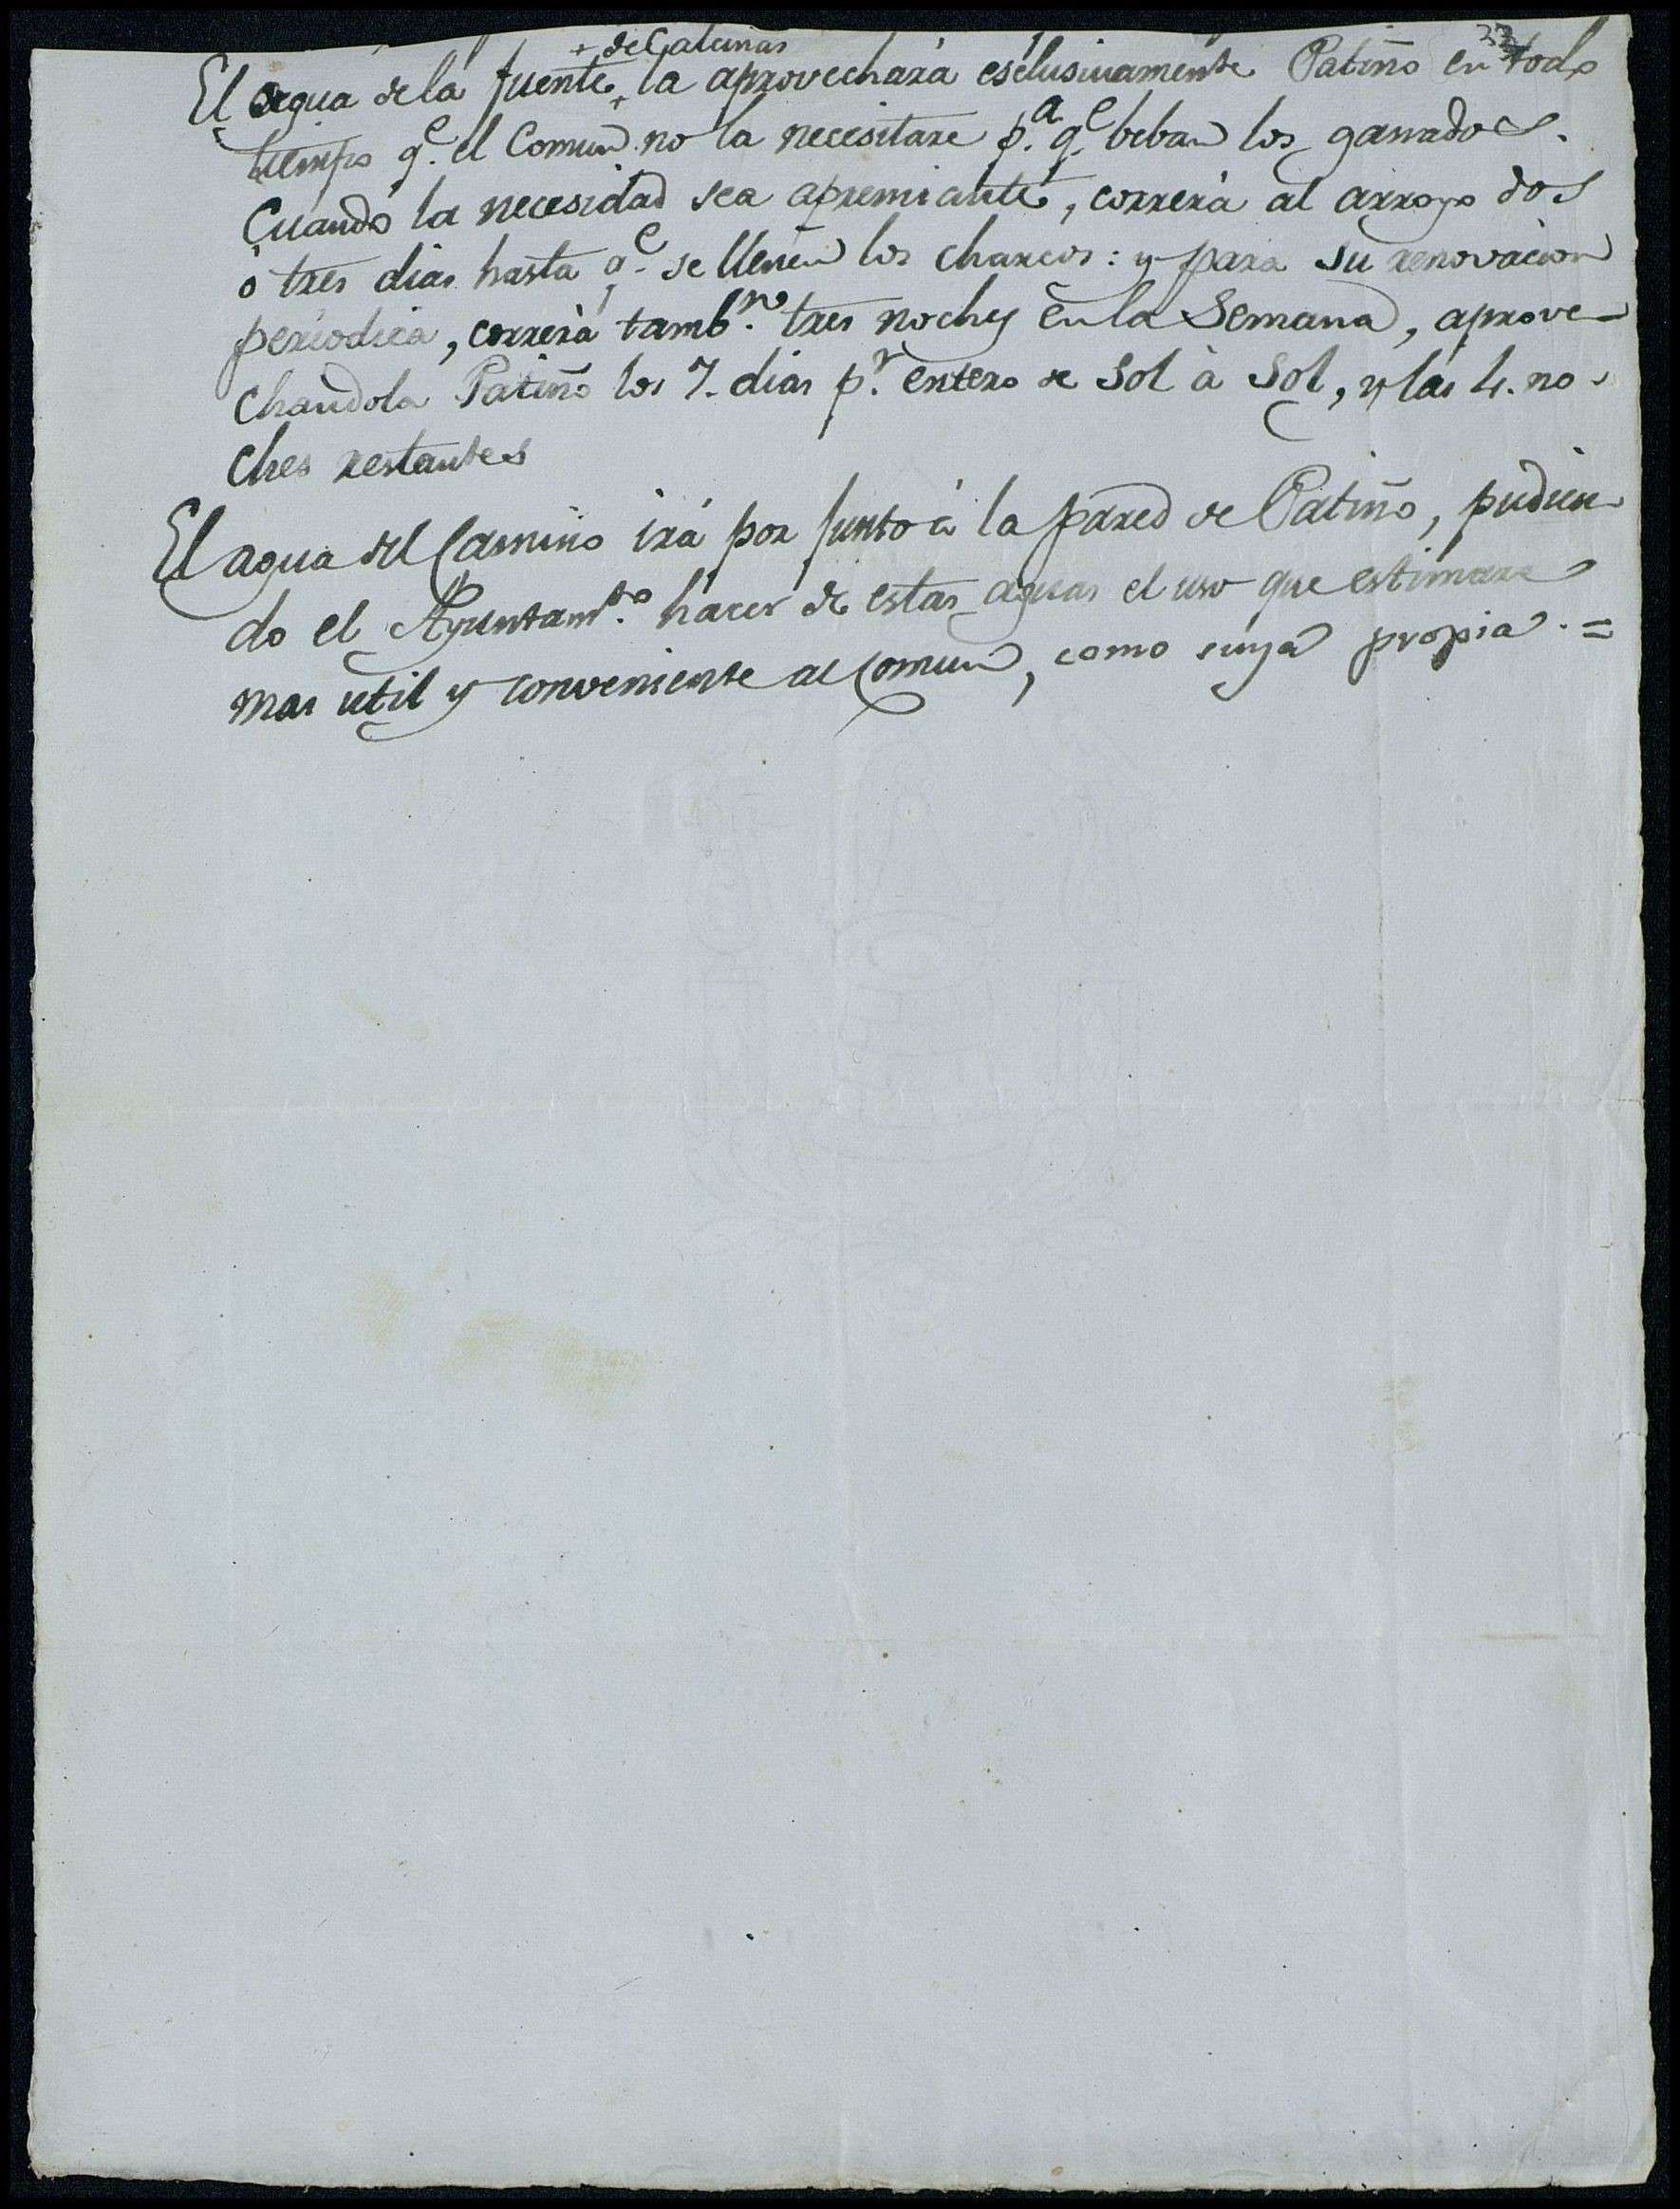 + de Galeinas
El agua de la fuente + la aprovechará esclusivamente Patiño en todo
tiempo q.e el Comun no la necesitare p.a q.e beban los ganados.
Cuando la necesidad sea apremiante, correrá al arroyo dos
ó tres dias hasta q.e se llenen los charcos: y para su renovacion
periodica, correrá tamb.n tres noches en la Semana, aprove-
chandola Patiño los 7. dias p.r entero de Sol à Sol, y las 4. no-
ches restantes
El agua del Camino irá por junto à la pared de Patiño, pudien-
do el Ayuntam.to hacer de estas aguas el uso que estimare
mas util y conveniente al comun, como suya propia. =